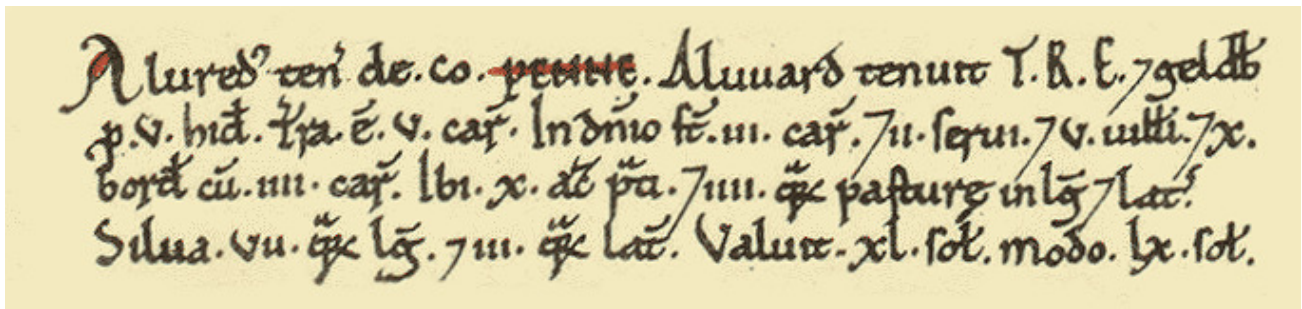 Alured᾽ ten̄ de. co. petue. Aluuard tenuit T. R. E. ⁊ geldb̄
p. v. hid̄. Tr̄a. ē. v. car̄. In dn̄io st̄. iii. car̄. ⁊ ii. serui. ⁊ v. uilli. ⁊ x.
bord̄ cū. iiii. car̄. Ibi. x. ac̄ p̄ti. ⁊ iiii. qr̄ pasturę in lḡ ⁊ lat̄.
Silua. vii. qr̄ lḡ. ⁊ iii. qr̄ lat̄. Valuit. xl. sol. modo. lx. sol.